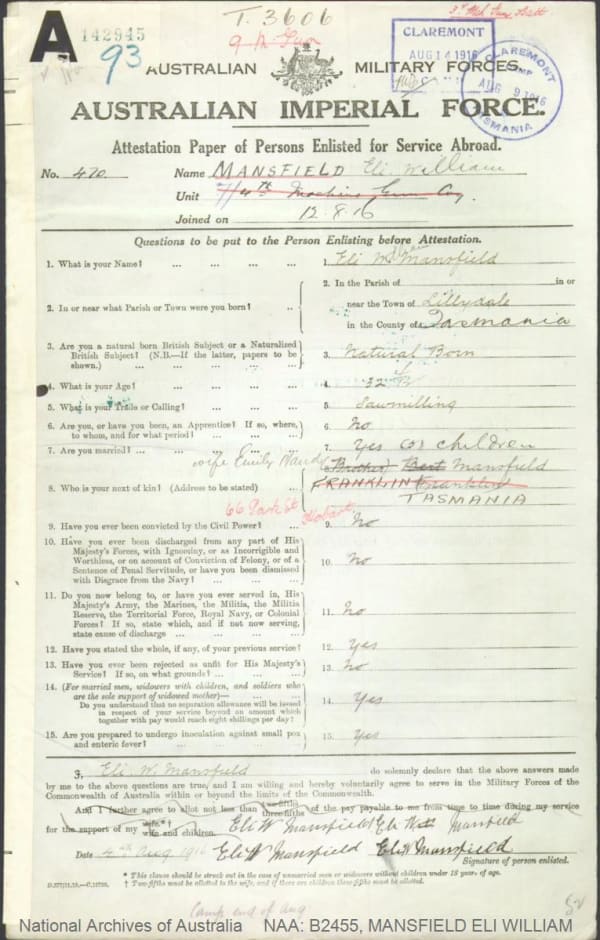 T. 3606
A
142945
93
9 M Gun
CLAREMONT
AUG 14 1916
CLAREMONT
CAMP
AUG 9 1916
TASMANIA
AUSTRALIAN MILITARY FORCES.
AUSTRALIAN IMPERIAL FORCE.
Attestation Paper of Persons Enlisted for Service Abroad.
No. 470 Name MANSFIELD Eli William
Unit 4th Machine Gun Coy.
Joined on 12.8.16
Questions to be put to the Person Enlisting before Attestation.
1. What is your Name? ... ... ... ... 1. Eli William Mansfield
2. In or near what Parish or Town were you born? .. 2. In the Parish of in or
near the Town of Lillydale
in the County of Tasmania
3. Are you a natural born British Subject or a Naturalized
British Subject? (N.B.—If the latter, papers to be
shown.) ... ... ... ... 3. Natural Born
4. What is your Age? ... ... ... ... 4. 32
5. What is your Trade or Calling? ... ... ... 5. Sawmilling
6. Are you, or have you been, an Apprentice? If so, where,
to whom, and for what period? ... ... ... 6. No
7. Are you married? ... ... ... ... 7. Yes children
wife Emily Maud
8. Who is your next of kin? (Address to be stated) ... 8. Brother Bert Mansfield
FRANKLIN Franklin
TASMANIA
66 Park St Hobart
9. Have you ever been convicted by the Civil Power? ... 9. No
10. Have you ever been discharged from any part of His
Majesty's Forces, with Ignominy, or as Incorrigible and
Worthless, or on account of Conviction of Felony, or of a
Sentence of Penal Servitude, or have you been dismissed
with Disgrace from the Navy? ... ... ... 10. No
11. Do you now belong to, or have you ever served in, His
Majesty's Army, the Marines, the Militia, the Militia
Reserve, the Territorial Force, Royal Navy, or Colonial
Forces? If so, state which, and if not now serving,
state cause of discharge ... ... ... ... 11. No
12. Have you stated the whole, if any, of your previous service? 12. Yes
13. Have you ever been rejected as unfit for His Majesty's
Service? If so, on what grounds? ... ... ... 13. No
14. (For married men, widowers with children, and soldiers who
are the sole support of widowed mother)—
Do you understand that no separation allowance will be issued
in respect of your service beyond an amount which
together with pay would reach eight shillings per day? 14. Yes
15. Are you prepared to undergo inoculation against small pox
and enteric fever? ... ... ... ... 15. Yes
I, Eli W. Mansfield do solemnly declare that the above answers made
by me to the above questions are true, and I am willing and hereby voluntarily agree to serve in the Military Forces of the
Commonwealth of Australia within or beyond the limits of the Commonwealth.
And I further agree to allot not less than two-fifths three-fifths of the pay payable to me from time to time during my service
for the support of my wife.*† wife and children. Eli W Mansfield Eli W Mansfield
Date 4th Aug 1916 Eli W Mansfield Eli W Mansfield
Signature of person enlisted.
* This clause should be struck out in the case of unmarried men or widowers without children under 18 years of age.
† Two-fifths must be allotted to the wife, and if there are children three-fifths must be allotted.
Camp end of Aug
National Archives of Australia NAA: B2455, MANSFIELD ELI WILLIAM